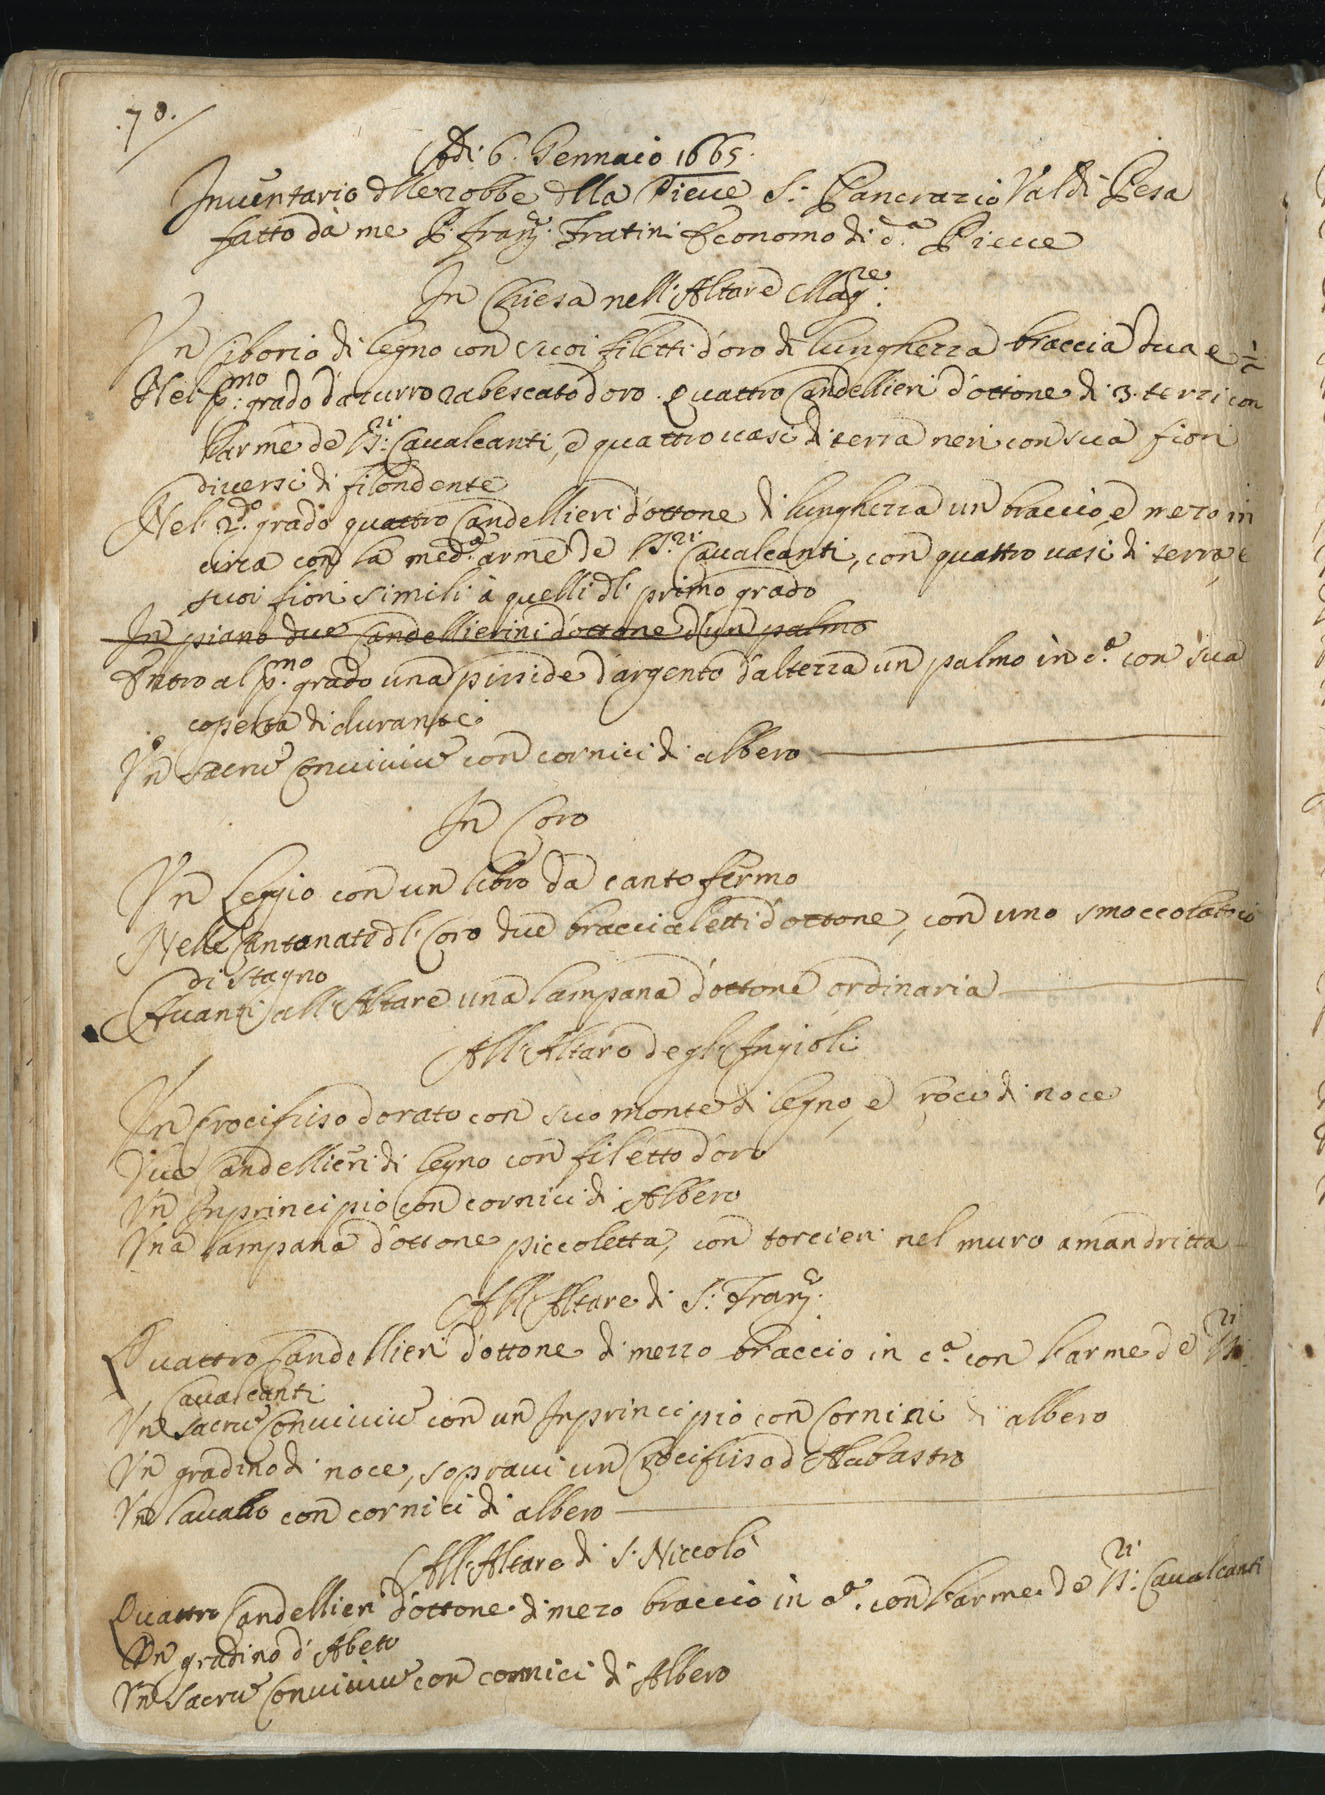 .70.
Adi 6. Gennaio 1665.
Inventario dlle robbe dlla Pieve S: Pancrazio Val di Pesa
fatto dà me P. Franc.º Fratini Economo di d.ª Pieve
In Chiesa nell'Altare Mag.re:
Un Ciborio di legno con suoi filetti d'oro di lunghezza braccia dua e ½
Nel p.mo grado d'azurro rabescato d'oro. Quattro Candellieri d'ottone di 3. terzi con
l'arme de SS.ri Cavalcanti, e quattro vasi di terra neri con sua fiori
diversi di filondente
Nel 2.do grado quattro Candellieri d'ottone di lunghezza un braccio e mezo in
circa con la med.ª arme de SS.ri Cavalcanti, con quattro vasi di terra e
suoi fiori simili à quelli dl primo grado
In piano due Candellierini d'ottone d'un palmo
Entro al p.mo grado una pisside d'argento d'altezza un palmo in c.ª con sua
coperta di durante
Un Sacrũ Conuiuiũ con cornici di albero
In Coro
Un Leggio con un libro da canto fermo
Nelle Cantonate dl Coro due braccialetti d'ottone, con uno smoccolatoio
di stagno
Avanti all'Altare una lampana d'ottone ordinaria
All'Altare degl'Ingioli
Un Crocifisso dorato con suo monte di legno, e croce di noce
Due Candellieri di legno con filetto d'oro
Un Inprincipio con cornici di Albero
Una lampana d'ottone piccoletta, con torcieri nel muro a man dritta
All'Altare di S: Franc.º
Quattro Candellieri d'ottone di mezzo braccio in c.ª con l'arme de SS.ri
Cavalcanti
Un Sacrũ Conuiuiũ con un Inprincipio con Cornici di albero
Un gradino di noce, sopravi un Crocifisso d'Alabastro
Un lavabo con cornici di albero
All'Altare di S: Niccolò
Quattro Candellieri d'ottone di mezo braccio in c.ª con l'arme de SS.ri Cavalcanti
Un gradino d'Abeto
Un Sacrũ Conuiuiũ con cornici di Albero